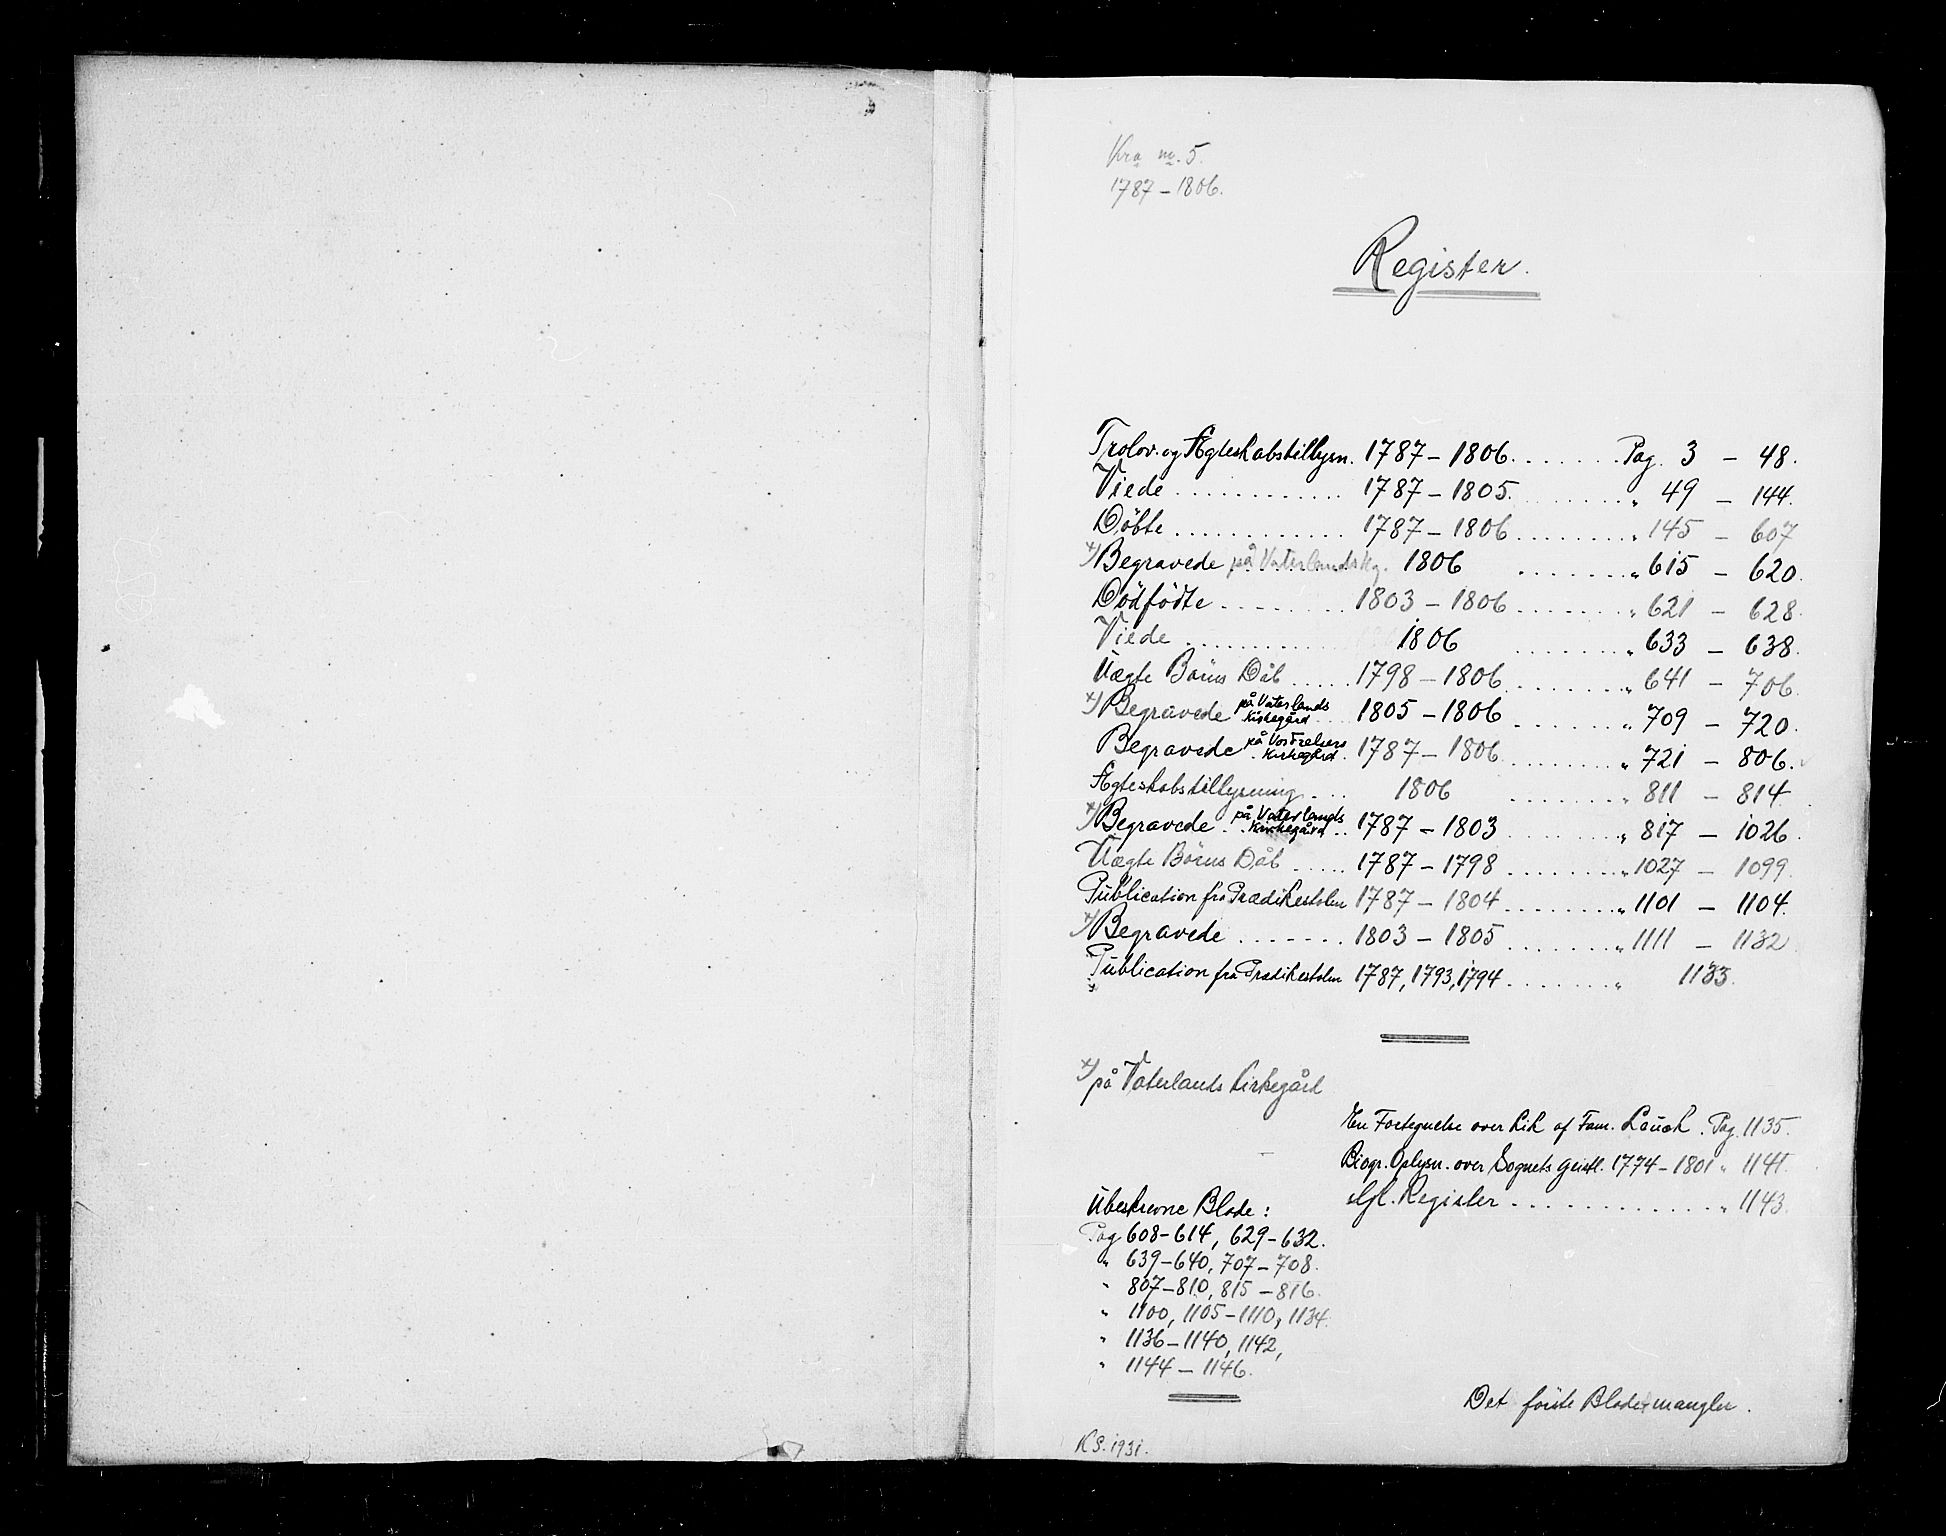 Kra nr. 5.
1787 – 1806.
Register.
Trolov. og Ægteskabstillysn. 1787 – 1806. ....... Pag. 3 – 48.
Viede ............ 1787 – 1805. ....... " 49 – 144.
Döbte ............ 1787 – 1806 ........ " 145 – 607
x) Begravede på Vaterlands Kg. 1806 ....... " 615 – 620.
Dödfödte ........ 1803 – 1806 ....... " 621 – 628.
Viede ............ 1806 ....... " 633 – 638.
Uægte Börns Dåb ..... 1798 – 1806 ....... " 641 – 706.
x) Begravede på Vaterlands Kirkegård 1805 – 1806 ....... " 709 – 720.
Begravede på Vor Frelsers Kirkegård 1787 – 1806 ....... " 721 – 806.
Ægteskabstillysning .... 1806 ....... " 811 – 814
x) Begravede på Vaterlands Kirkegård .. 1787 – 1803 ....... " 817 – 1026.
Uægte Börns Dåb ..... 1787 – 1798 ....... " 1027 – 1099.
Publication fra Prædikestolen 1787 – 1804 ....... " 1101 – 1104.
x) Begravede ....... 1803 – 1805 ....... " 1111 – 1132
Publication fra Prædikestolen 1787, 1793, 1794 ....... " 1133.
x) på Vaterlands Kirkegård
En Fortegnelse over Lik af Fam. Leuch. Pag. 1135.
Biogr. Oplysn. over Sognets Geistl. 1774 – 1801 " 1141.
Gl. Register ............. " 1143.
Ubeskrevne Blade:
Pag 608–614, 629–632.
" 639–640, 707–708.
" 807–810, 815–816.
" 1100, 1105–1110, 1134.
" 1136–1140, 1142,
" 1144 – 1146.
Det förste Blad mangler.
KS. 1931.